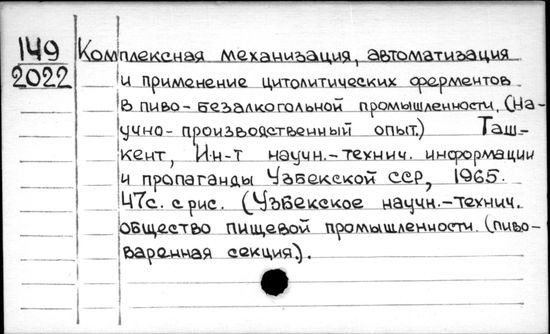 149
2022
Комплексная механизация, автоматизация
и применение цитолитических ферментов
в пиво-безалкогольной промышленности. (На-
учно-производственный опыт.) Таш-
кент, Ин-т научн.-технич. информации
и пропаганды Узбекской ССР, 1965.
47с. с рис. (Узбекское научн.-технич.
общество пищевой промышленности. (пиво-
варенная секция.).